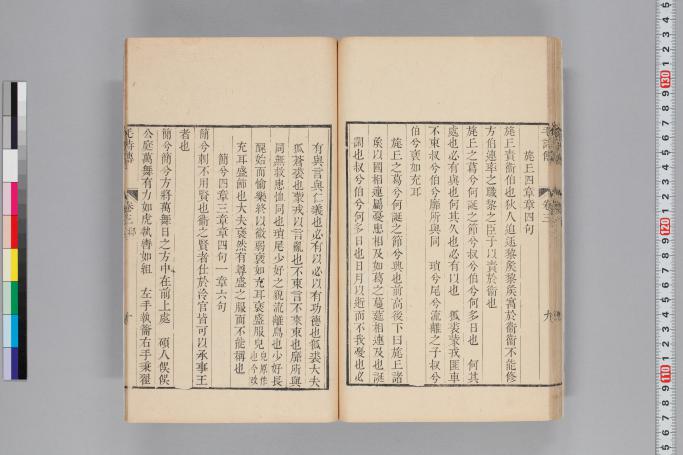 旄丘四章章四句
旄丘責衞伯也狄人迫逐黎矦黎矦寓於衞衞不能修
方伯連率之職黎之臣子以責於衞也
旄丘之葛兮何誕之節兮叔兮伯兮何多日也　何其
處也必有與也何其久也必有以也　狐裘蒙戎匪車
不東叔兮伯兮靡所與同　瑣兮尾兮流離之子叔兮
伯兮褎如充耳
旄丘之葛兮何誕之節兮興也前高後下曰旄丘諸
矦以國相連屬憂患相及如葛之蔓莚相連及也誕
闊也叔兮伯兮何多日也日月以逝而不我憂也必
有與言與仁義也必有以必以有功德也狐裘大夫
狐蒼裘也蒙戎以言亂也不東言不來東也靡所與
同無救患恤同也瑣尾少好之貌流離鳥也少好長
醜始而愉樂終以微弱褎如充耳褎盛服皃皃原作也今改
充耳盛飾也大夫褎然有尊盛之服而不能稱也
簡兮四章三章章四句一章六句
簡兮刺不用賢也衞之賢者仕於泠官皆可以承事王
者也
簡兮簡兮方將萬舞日之方中在前上處　碩人俁俁
公庭萬舞有力如虎執轡如組　左手執籥右手秉翟
毛詩傳　卷三　邶　十